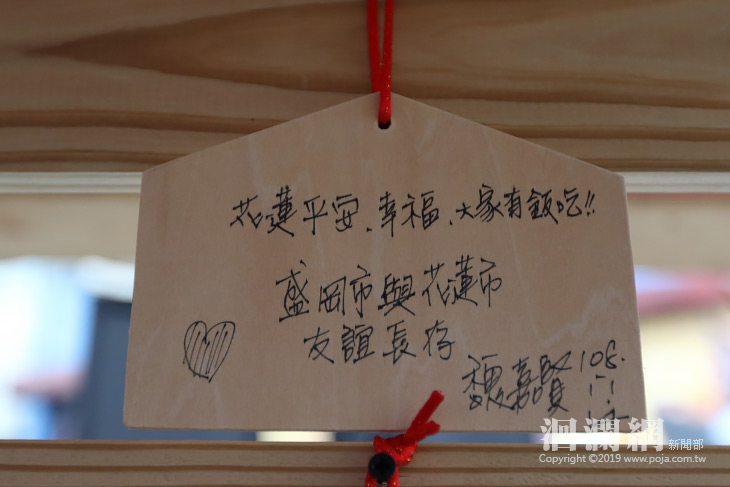 花蓮平安、幸福、大家有飯吃!!
盛岡市與花蓮市
友誼長存
魏嘉賢 108.
洄瀾網 新聞部
Copyright ©2019 www.poja.com.tw